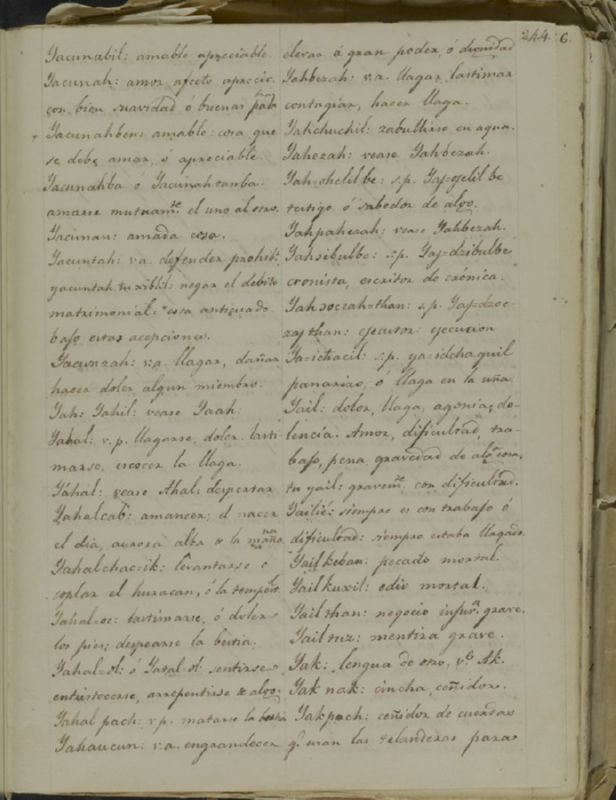 244. 6.
Yacunabil: amable apreciable.
Yacunah: amor, afecto aprecio.
con bien suavidad ó buenas palabras
Yacunahben: amable: cosa que
se debe amar, ó apreciable.
Yacunahba ó Yacunahtamba.
amarse mutuamte. el uno al otro.
Yacunan: amada cosa.
Yacuntah: v.a. defender prohibir
yacuntah tu xiblil: negar el debito
matrimonial: esta anticuado
bajo estas acepciones.
Yacunzah: v.a. llagar, dañar
hacer doler algun miembro.
Yah: Yahil: vease Yaah.
Yahal: v.p. llagarse, doler, lasti-
marse, escocer la llaga.
Yahal: vease Ahal: despertar
Yahalcab: amanecer; el nacer
el dia, aurora alta de la mañana
Yahalchac-ik: levantarse ó
soplar el huracan, ó la tempest.
Yahal-oc: lastimarse, ó doler
los pies; despearse la bestia.
Yahal-ol: ó Yaxal-ol: sentirse
entristecerse, arrepentirse de algo.
Yahal pach: v.p. matarse la bestia
Yahaucun: v.a. engrandecer
elevar á gran poder, ó dignidad
Yahbezah: v.a. llagar, lastimar
contagiar, hacer llaga.
Yahchuchil: zabullirse en agua.
Yahezah: vease Yahbezah.
Yah-ohelil be: s.p. Yaj-ojelil be
testigo ó sabedor de algo.
Yahpahezah: vease Yahbezah.
Yahsibulbe: s.p. Yaj-dzibulbe
cronista, escritor de crónica.
Yahsoczah-than: s.p. Yaj-dzoc-
zaj than: ejecutor: ejecucion
Ya-ichacil: s.p. ya-idchaquil
panarizo, ó llaga en la uña.
Yail: dolor, llaga, agonia, do-
lencia. Amor, dificultad, tra-
bajo, pena gravedad de alga. cosa,
tu yail: gravemte. con dificultad.
Yailié: siempre es con trabajo ó
dificultad: siempre estaba llagado.
Yail keban: pecado mortal.
Yail kuxil: odio mortal.
Yail than: negocio grave.
Yail tuz: mentira grave.
Yak: lengua de otro, vo. Ak.
Yak nak: cincha, ceñidor.
Yakpach: ceñidor de cuerdas
q. usan las telanderas para